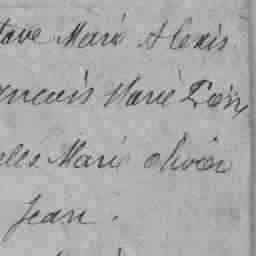 tave Marie Alexis
ancois Marie Pierre
lles Marie Olivier
Jean.